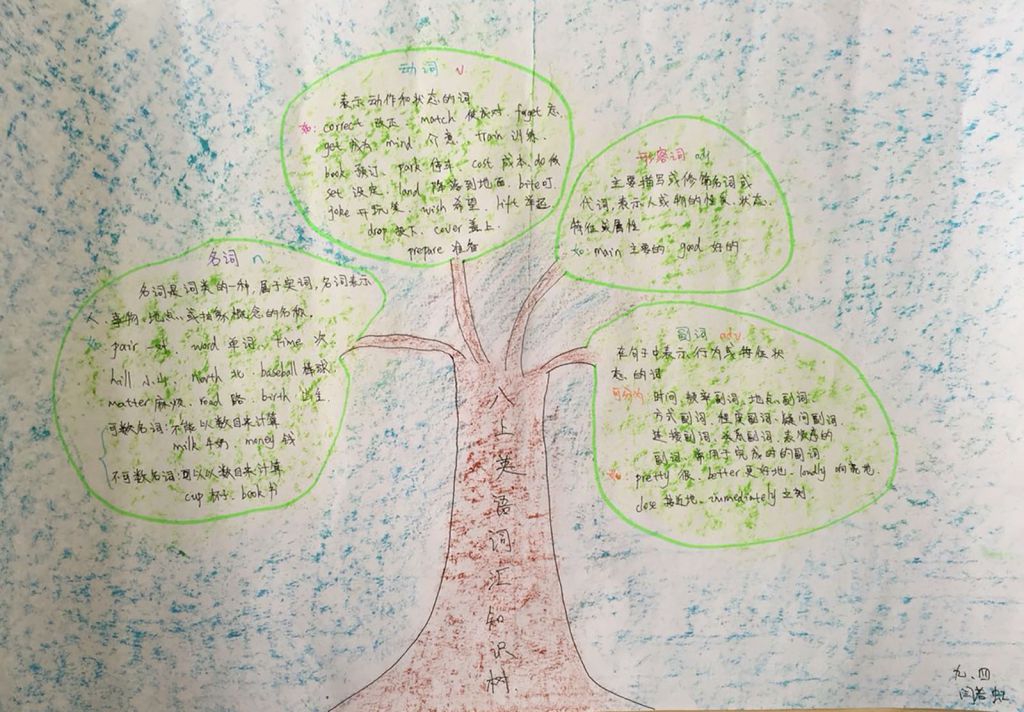 动词 v
表示动作和状态的词
如: correct 改正 match 使成对 forget 忘
get 成为 mind 介意 train 训练
book 预订、park 停车 cost 成本 do 做
set 设定、land 降落到地面、bite 叮
joke 开玩笑、wish 希望、lift 举起
drop 放下、cover 盖上、
prepare 准备
形容词 adj
主要描写或修饰名词或
代词,表示人或物的性质、状态、
特征或属性
如: main 主要的、good 好的
名词 n.
名词是词类的一种,属于实词,名词表示
人、事物、地点、或抽象概念的名称。
如: pair 一对、word 单词、time 次
hill 小山、north 北、baseball 棒球
matter 麻烦、road 路、birth 出生
可数名词:不能以数目来计算
milk 牛奶、money 钱
不可数名词:可以以数目来计算
cup 杯子、book 书
副词 adv
在句子中表示行为或特征状
态的词
可分为: 时间,频率副词,地点副词
方式副词,程度副词、疑问副词、
连接副词、关系副词、表顺序的
副词、常用于完成时的副词
如 pretty 很、better 更好地、loudly 响亮地
close 接近地、immediately 立刻
八上英语词汇知识树
九、四
闫若虹